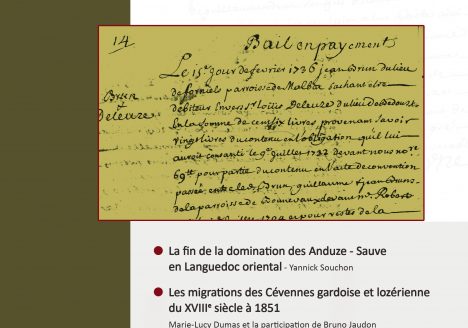 14
Bail en payement
Le 15e jour de fevrier 1736 jean brun du lieu
de forniels parroisse de Malbta
Brun
Deleuze
debiteur Invers Sr Loüis Deleuze du lieu
En la somme de cent six livres provenant savoir
vingt livres du contenu en l'obligation qu'il lui
auroit consanti le 9e juillet 1732 devant nous nore
69lt pour partie du contenu en l'acte de convention
passée entre led. Brun, guillaume
de la parroisse de devant me Robert
et pour restes de la
● La fin de la domination des Anduze - Sauve
en Languedoc oriental - Yannick Souchon
● Les migrations des Cévennes gardoise et lozérienne
du XVIIIe siècle à 1851
Marie-Lucy Dumas et la participation de Bruno Jaudon